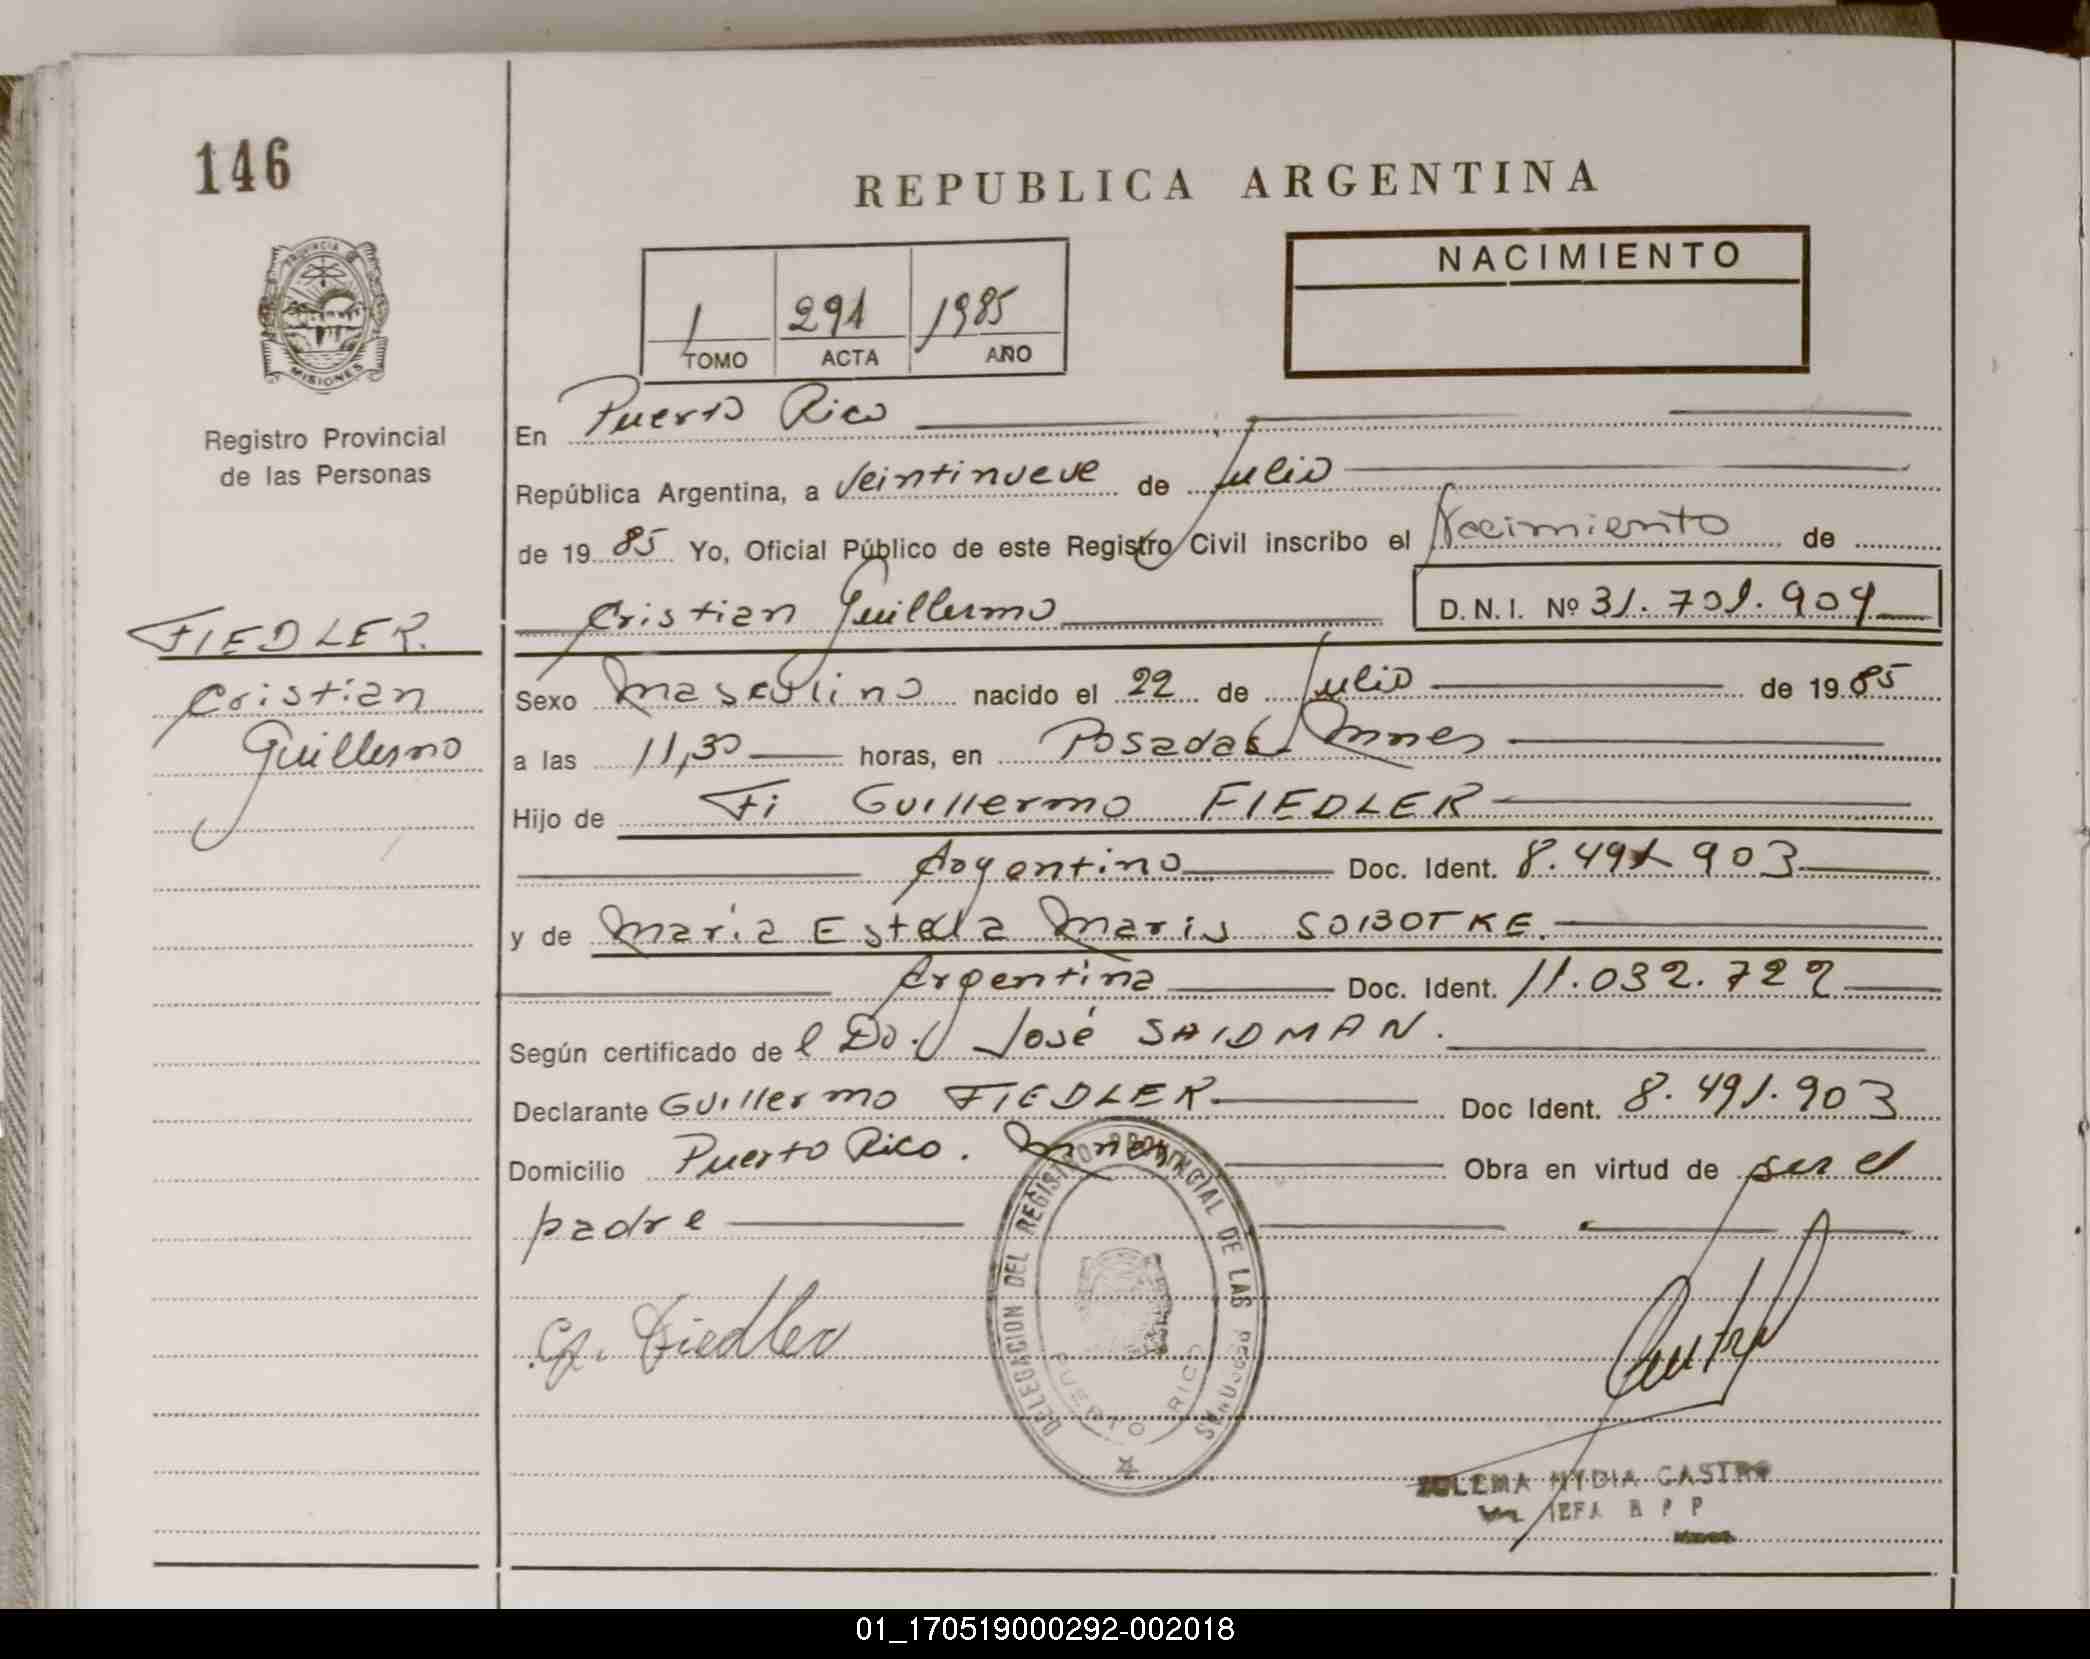 146
REPUBLICA ARGENTINA
PROVINCIA DE MISIONES
NACIMIENTO
1 291 1985
TOMO ACTA AÑO
Registro Provincial
de las Personas
En Puerto Rico
República Argentina, a Veintinueve de Julio
de 1985 Yo, Oficial Público de este Registro Civil inscribo el Nacimiento de
Cristian Guillermo D.N.I. Nº 31.701.909
FIEDLER.
Cristian
Guillermo
Sexo Masculino nacido el 22 de Julio de 1985
a las 11,30 horas, en Posadas Mnes
Hijo de Guillermo FIEDLER
Argentino Doc. Ident. 8.491.903
y de Maria Estela Maris SOBOTKE.
Argentina Doc. Ident. 11.032.722
Según certificado de l Dr. José SAIDMAN.
Declarante Guillermo FIEDLER Doc Ident. 8.491.903
Domicilio Puerto Rico. Mnes Obra en virtud de ser el
padre
DELEGACION DEL REGISTRO PROVINCIAL DE LAS PERSONAS
PUERTO RICO
G. Fiedler
NYDIA CASTRO
01_170519000292-002018